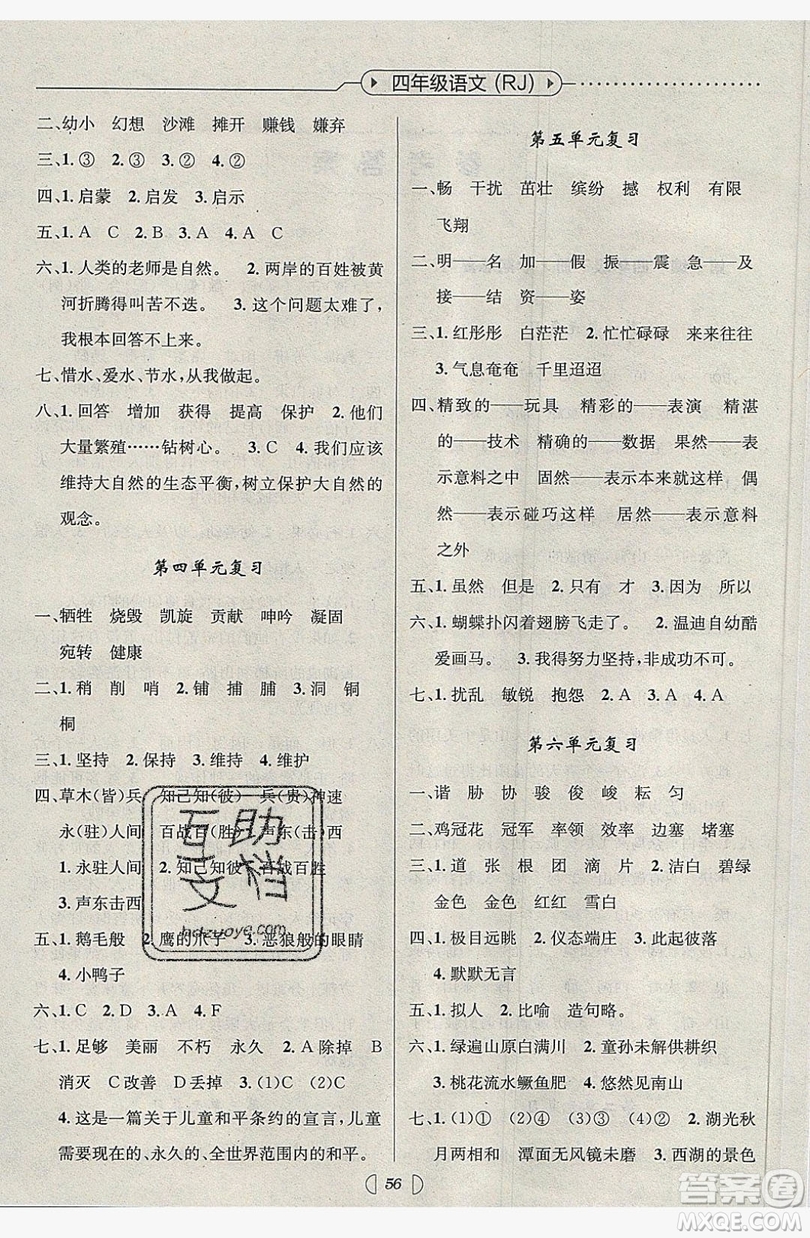 四年级语文(RJ)
二、幼小 幻想 沙滩 摊开 赚钱 嫌弃
三、1.③ 2.③ 3.② 4.②
四、1.启蒙 2.启发 3.启示
五、1.A C 2.B 3.A 4.A C
六、1.人类的老师是自然。 2.两岸的百姓被黄
河折腾得叫苦不迭。 3.这个问题太难了,
我根本回答不上来。
七、惜水、爱水、节水,从我做起。
八、1.回答 增加 获得 提高 保护 2.他们
大量繁殖……钻树心。 3.C 4.我们应该
维持大自然的生态平衡,树立保护大自然的
观念。
第四单元复习
一、牺牲 烧毁 凯旋 贡献 呻吟 凝固
宛转 健康
二、1.稍 削 哨 2.铺 捕 脯 3.洞 铜
桐
三、1.坚持 2.保持 3.维持 4.维护
四、草木(皆)兵 知己知(彼) 兵(贵)神速
永(驻)人间 百战百(胜) 声东(击)西
1.永驻人间 2.知己知彼 百战百胜
3.声东击西
五、1.鹅毛般 2.鹰的爪子 3.恶狼般的眼睛
4.小鸭子
六、1.C 2.D 3.A 4.F
七、1.足够 美丽 不朽 永久 2.A除掉 B
消灭 C改善 D丢掉 3.(1)C (2)C
4.这是一篇关于儿童和平条约的宣言,儿童
需要现在的、永久的、全世界范围内的和平。
第五单元复习
一、畅 干扰 茁壮 缤纷 撼 权利 有限
飞翔
二、明——名 加——假 振——震 急——及
接——结 资——姿
三、1.红彤彤 白茫茫 2.忙忙碌碌 来来往往
3.气息奄奄 千里迢迢
四、精致的——玩具 精彩的——表演 精湛
的——技术 精确的——数据 果然——表
示意料之中 固然——表示本来就这样 居
然——表示碰巧这样 居然——表示意料
之外
五、1.虽然 但是 2.只有 才 3.因为 所以
六、1.蝴蝶扑闪着翅膀飞走了。 2.温迪自幼酷
爱画马。 3.我得努力坚持,非成功不可。
七、1.扰乱 敏锐 抱怨 2.A 3.A 4.A
第六单元复习
一、谐 胁 协 骏 俊 峻 耘 匀
二、鸡冠花 冠军 率领 效率 边塞 堵塞
三、1.道 张 根 团 滴 片 2.洁白 碧绿
金色 金色 红红 雪白
四、1.极目远眺 2.仪态端庄 3.此起彼落
4.默默无言
五、1.拟人 2.比喻 造句略。
六、1.绿遍山原白满川 2.童孙未解供耕织
3.桃花流水鳜鱼肥 4.悠然见南山
七、1.(1)① (2)④ (3)③ (4)② 2.湖光秋
月两相和 潭面无风镜未磨 3.西湖的景色
56
互助
文档
hdzuoye.com
答案圈
MXQE.COM